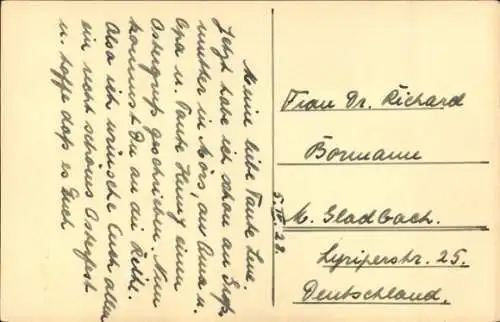 Meine liebe Tante Lene.
Jetzt habe ich schon an Groß
mutter in Mörs, an Oma u.
Opa u. Tante Henny einen
Ostergruß geschrieben. Nun
kommst Du an die Reihe.
Also ich wünsche Euch allen
ein recht schönes Osterfest
u. hoffe daß es Euch
5. IV. 28.
Frau Dr. Richard
Bormann
M. Gladbach.
Lyriperstr. 25.
Deutschland.